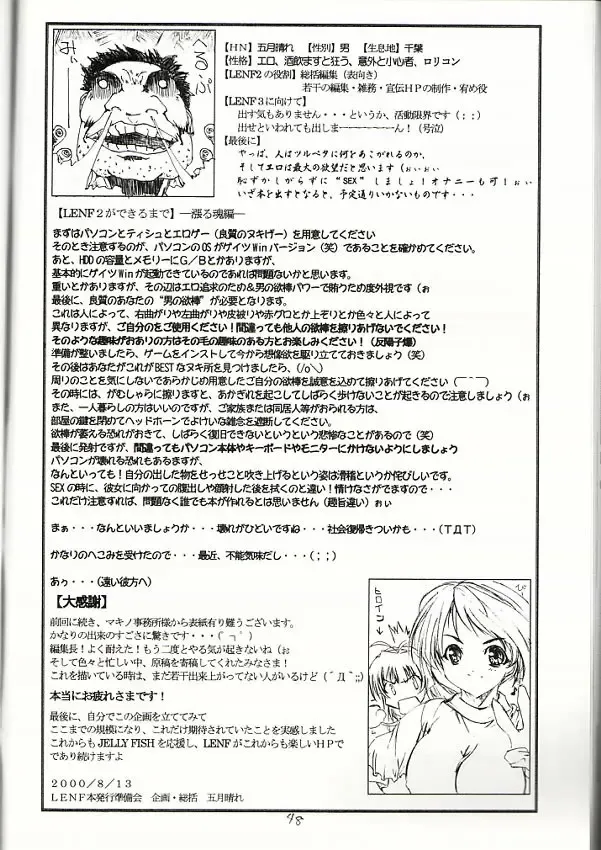 くるぷ
みぃ
【HN】五月晴れ 【性別】男 【生息地】千葉
【性格】エロ、酒飲ますと狂う、意外と小心者、ロリコン
【LENF2の役割】総括編集（表向き）
若干の編集・雑務・宣伝HPの制作・宥め役
【LENF3に向けて】
出す気もありません・・・というか、活動限界です（；；）
出せといわれても出しま―――――ん！（号泣）
【最後に】
やっぱ、人はツルペタに何をあこがれるのか、
そしてエロは最大の欲望だと思います（ぉぃぉぃ
恥ずかしがらずに“SEX”しましょ！オナニーも可！ぉぃ
いざ本を出すとなると、予定通りいかないものです・・・
【LENF2ができるまで】―漲る魂編―
まずはパソコンとティシュとエロゲー（良質のヌキゲー）を用意してください
そのとき注意するのが、パソコンのOSがゲイツWinバージョン（笑）であることを確かめてください。
あと、HDDの容量とメモリーにG／Bとかありますが、
基本的にゲイツWinが起動できているのであれば問題ないかと思います。
重いとかありますが、その辺はエロ追求のため&男の欲棒パワーで賄うため度外視です（ぉ
最後に、良質のあなたの“男の欲棒”が必要となります。
これは人によって、右曲がりや左曲がりや皮被りや赤グロとか上ぞりとか色々と人によって
異なりますが、ご自分のをご使用ください！間違っても他人の欲棒を擦りあげないでください！
そのような趣味がおありの方はその毛の趣味のある方とお楽しみください！（反陽子爆）
準備が整いましたら、ゲームをインストして今から想像欲を駆り立てておきましょう（笑）
その後はあなたがこれがBESTなヌキ所を見つけましたら、(/o＼)
周りのことを気にしないであらかじめ用意したご自分の欲棒を誠意を込めて擦りあげてください（￣ー￣）
その時には、がむしゃらに擦りますと、あかぎれを起こしてしばらく歩けないことが起きるので注意しましょう（ぉ
また、一人暮らしの方はいいのですが、ご家族または同居人等がおられる方は、
部屋の鍵を閉めてヘッドホーンでよけいな雑念を遮断してください。
欲棒が萎える恐れがおきて、しばらく復旧できないというという悲惨なことがあるので（笑）
最後に発射ですが、間違ってもパソコン本体やキーボードやモニターにかけないようにしましょう
パソコンが壊れる恐れもあるますが、
なんといっても！自分の出した物をせっせこと吹き上げるという姿は滑稽というか侘びしいです。
SEXの時に、彼女に向かっての腹出しや顔射した後を拭くのと違い！情けなさがでますので・・・
これだけ注意すれば、問題なく誰でも本が作れるとは思いません（趣旨違い）ぉぃ
まぁ・・・なんといいましょうか・・・壊れがひどいですね・・・社会復帰きついかも・・・（TДT）
かなりのへこみを受けたので・・・最近、不能気味だし・・・（；；）
あぅ・・・（遠い彼方へ）
【大感謝】
前回に続き、マキノ事務所様から表紙有り難うございます。
かなりの出来のすごさに驚きです・・・（゜┐゜）
編集長！よく耐えた！もう二度とやる気が起きないね（ぉ
そして色々と忙しい中、原稿を寄稿してくれたみなさま！
これを描いている時は、まだ若干出来上がってない人がいるけど（´Д｀;;）
本当にお疲れさまです！
最後に、自分でこの企画を立ててみて
ここまでの規模になり、これだけ期待されていたことを実感しました
これからもJELLY FISHを応援し、LENFがこれからも楽しいHPで
であり続けますよ
2000／8／13
LENF本発行準備会 企画・総括 五月晴れ
ヒロイン
ぴ
48